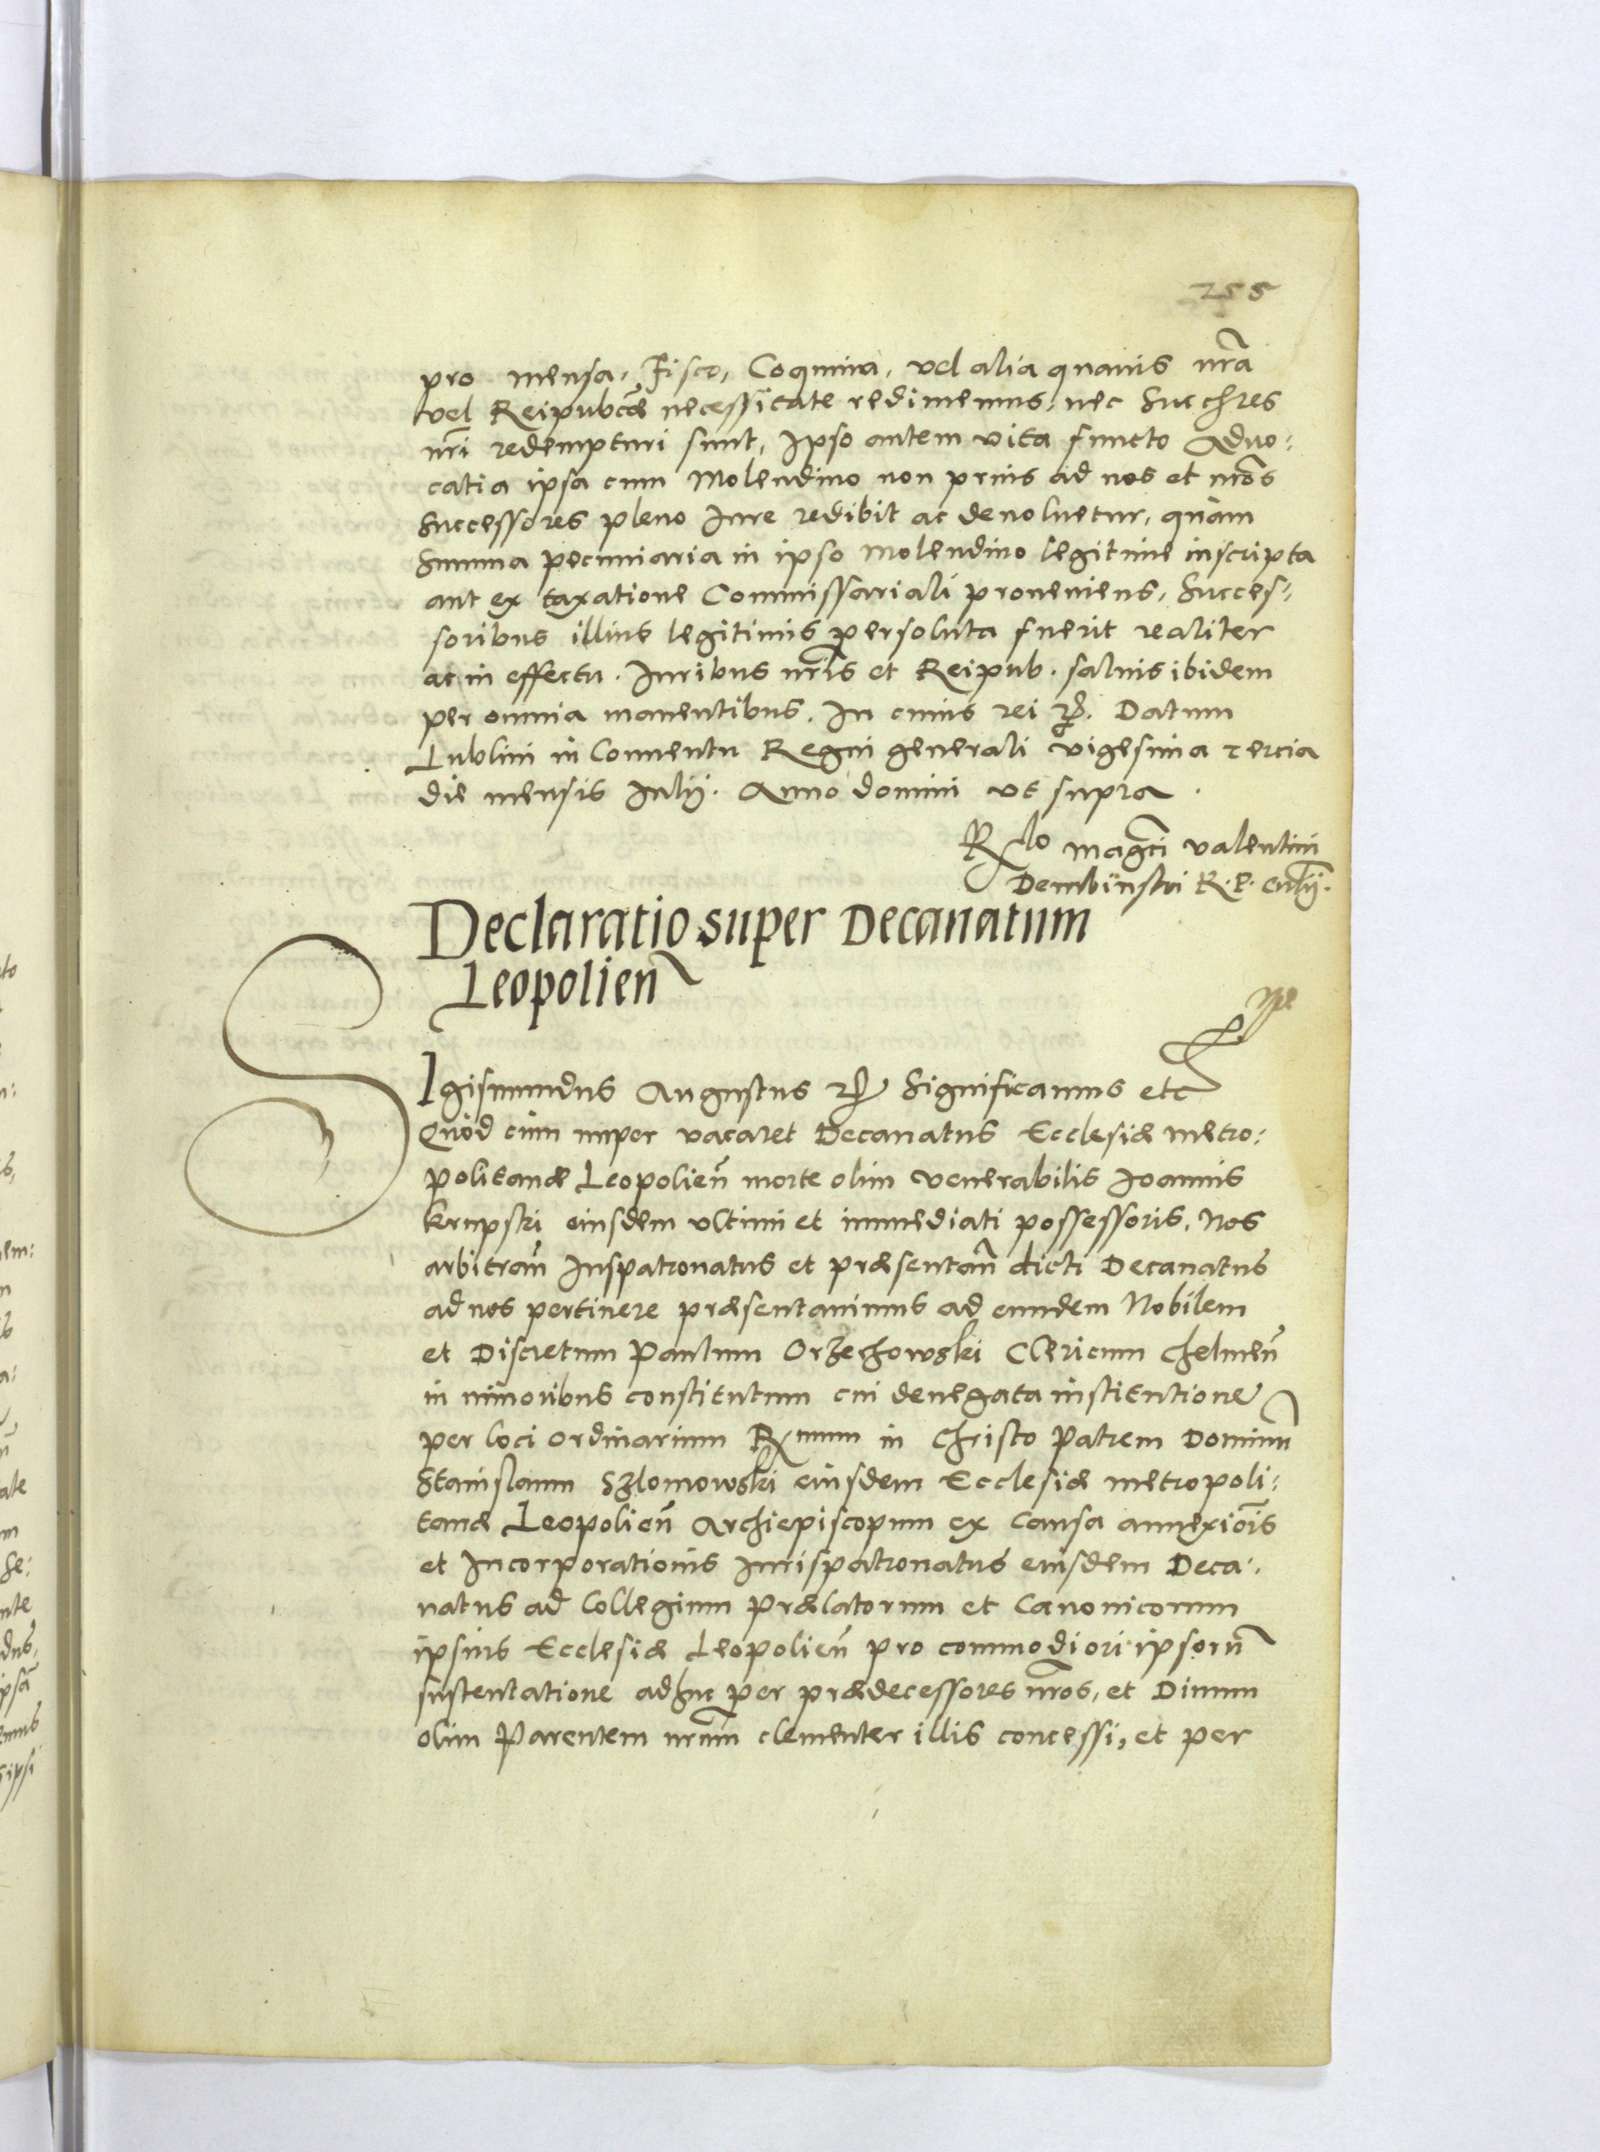 255
pro mensa, Fisco, Coquina, vel alia quauis nrã
vel Reipubcæ necessitate redimemus, nec Succhres
nrĩ redempturi sunt, Ipso autem vita functo Aduo:
catia ipsa cum Molendino non prius ad nos et nrõs
Successores pleno Iure redibit ac deuoluetur, quàm
Summa pecuniaria in ipso Molendino legitime inscripta
aut ex taxatione Commissariali proueniens, Succes:
soribus illius legitimis persoluta fuerit realiter
ac in effectu. Iuribus nrĩs et Reipub. saluis ibidem
per omnia manentibus. In cuius rei etc. Datum
Lublini in Conuentu Regni generali vigesima tercia
die mensis Iulij. Anno domini ut supra.
Rlo magci Valentini
Dembinski R. P. Canlij.
Declaratio super Decanatum
Leopolien̄
SIgismundus Augustus etc Significamus etc
Quòd cum nuper vacaret Decanatus Ecclesiæ metro:
politanæ Leopolien̄ morte olim venerabilis Ioannis
Krupski eiusdem vltimi et immediati possessoris, Nos
arbitran̄ Iuspatronatus et præsentan̄ dicti Decanatus
ad nos pertinere præsentauimus ad eundem Nobilem
et Discretum Paulum Orzechowski Clericum Chelmen̄
in minoribus constitutum cui denegata institutione
per loci ordinarium Rmum in Christo Patrem Dominũ
Stanislaum Szlomowski eiusdem Ecclesiæ metropoli:
tanæ Leopolien̄ Archiepiscopum ex causa annexiõis
et Incorporationis Iurispatronatus eiusdem Deca:
natus ad Collegium Prælatorum et Canonicorum
ipsius Ecclesiæ Leopolien̄ pro commodiori ipsorũ
sustentatione adhuc per prædecessores nrõs, et Diuum
olim Parentem nrũm clementer illis concessi, et per